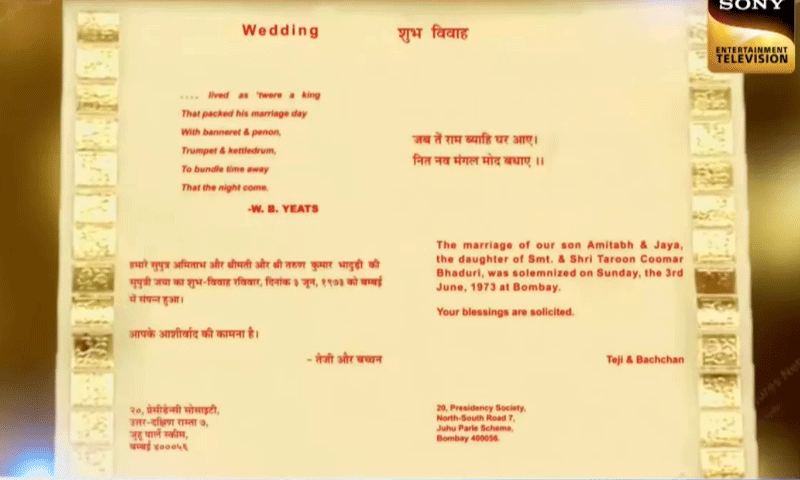 SONY
ENTERTAINMENT
TELEVISION
Wedding
शुभ विवाह
.... lived as 'twere a king
That packed his marriage day
With banneret & penon,
Trumpet & kettledrum,
To bundle time away
That the night come.
-W. B. YEATS
जब तें राम ब्याहि घर आए।
नित नव मंगल मोद बधाए ।।
हमारे सुपुत्र अमिताभ और श्रीमती और श्री तरुण कुमार भादुड़ी की
सुपुत्री जया का शुभ-विवाह रविवार, दिनांक ३ जून, १९७३ को बम्बई
में संपन्न हुआ।
आपके आशीर्वाद की कामना है।
- तेजी और बच्चन
The marriage of our son Amitabh & Jaya,
the daughter of Smt. & Shri Taroon Coomar
Bhaduri, was solemnized on Sunday, the 3rd
June, 1973 at Bombay.
Your blessings are solicited.
Teji & Bachchan
२०, प्रेसीडेन्सी सोसाइटी,
उत्तर-दक्षिण रास्ता ७,
जुहू पार्ले स्कीम,
बम्बई ४०००५६
20, Presidency Society,
North-South Road 7,
Juhu Parle Scheme,
Bombay 400056.